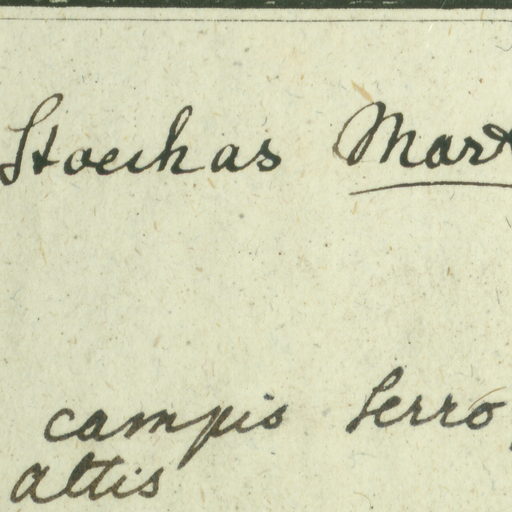 Stoechas Mart
campis Serro
altis